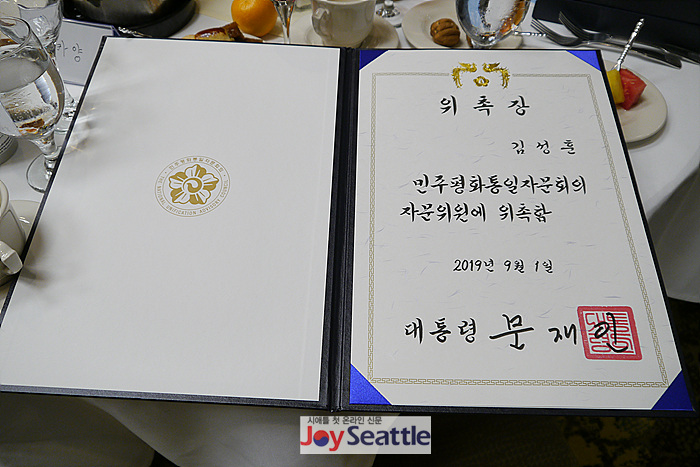 카양
위촉장
김성훈
민주평화통일자문회의
자문위원에 위촉함
2019년 9월 1일
대통령 문재인
시애틀 첫 온라인 신문
JoySeattle